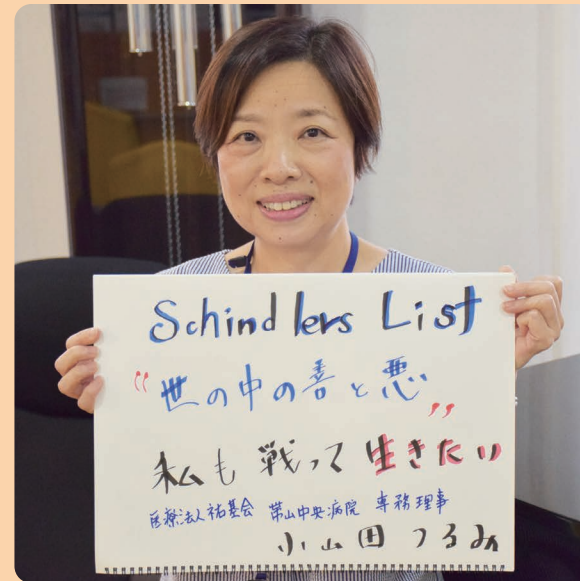 Schindlers List
“世の中の善と悪”
私も戦って生きたい
医療法人祐基会 帯山中央病院 専務理事
小山田つるみ